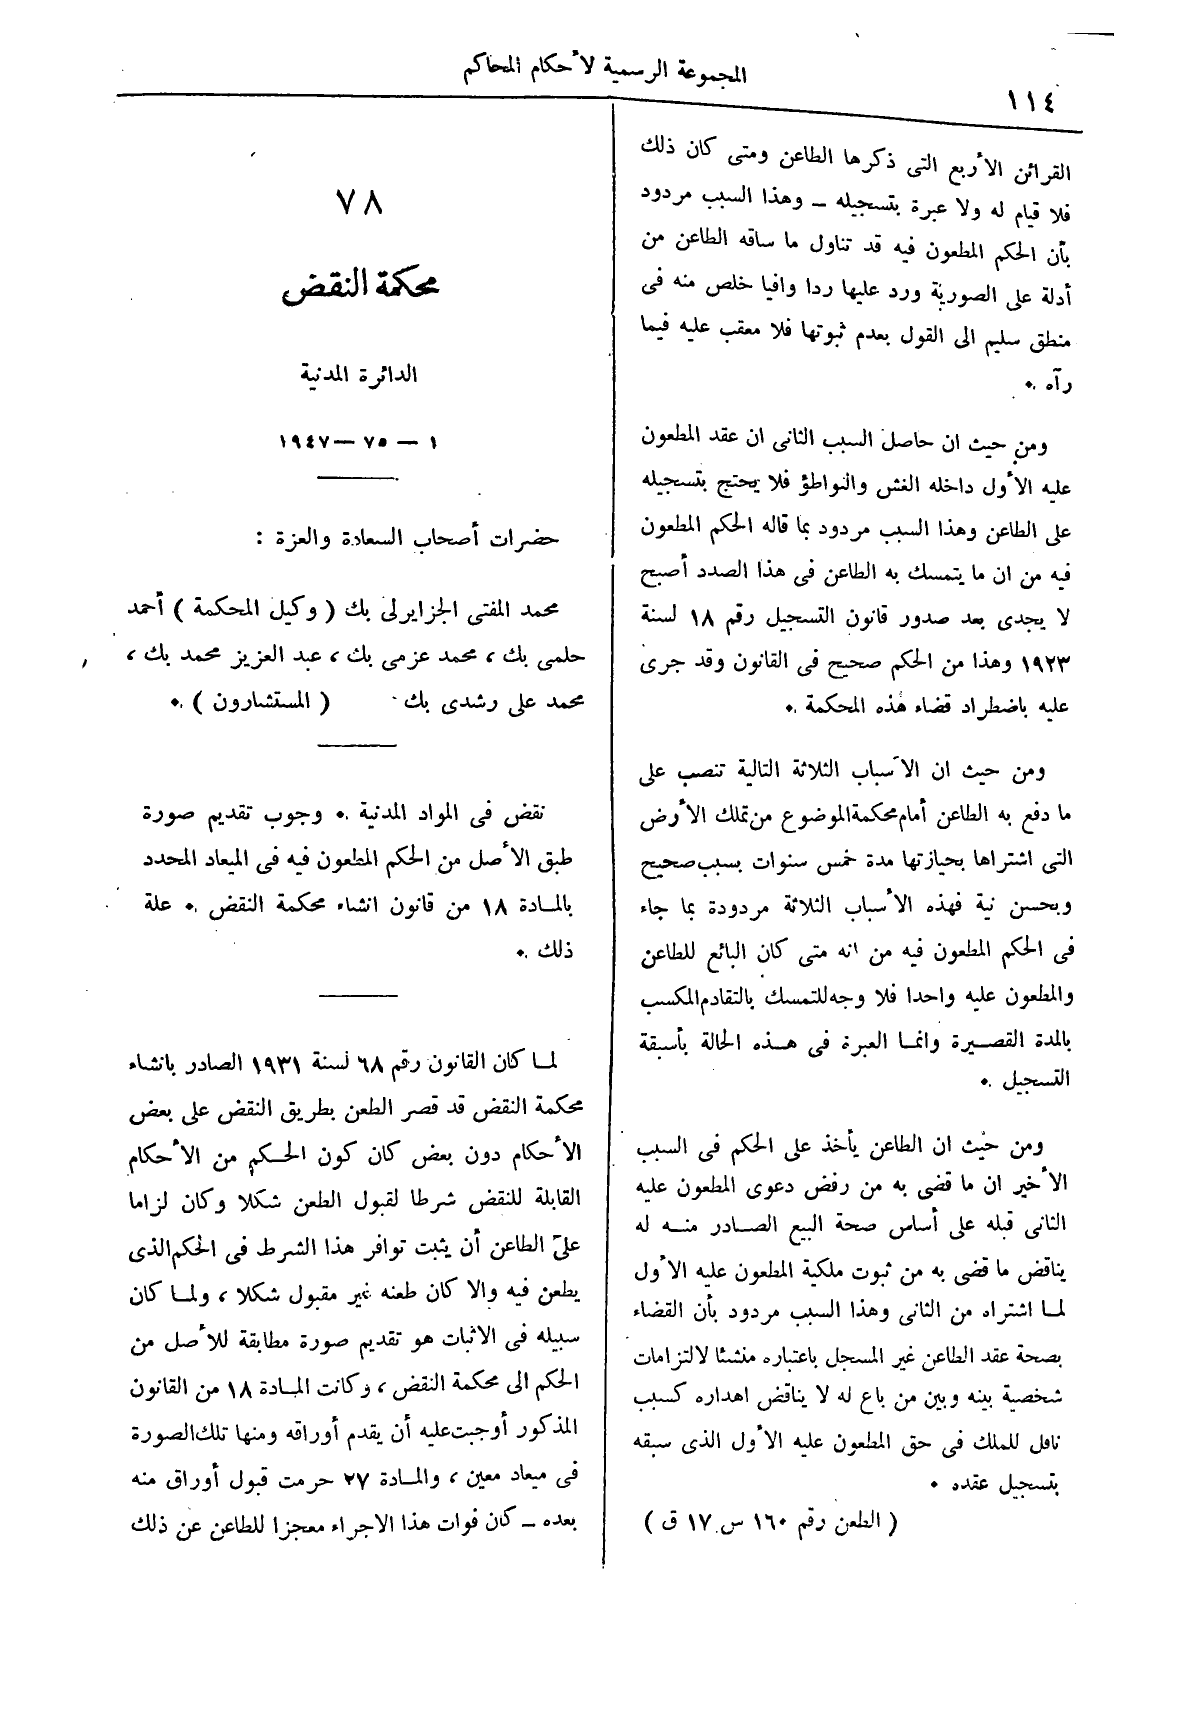 المجموعة الرسمية لأحكام المحاكم
١١٤
القرائن الأربع التى ذكرها الطاعن ومتى كان ذلك
فلا قيام له ولا عبرة بتسجيله ــ وهذا السبب مردود
بأن الحكم المطعون فيه قد تناول ما ساقه الطاعن من
أدلة على الصورية ورد عليها ردا وافيا خلص منه فى
منطق سليم الى القول بعدم ثبوتها فلا معقب عليه فيما
رآه .
ومن حيث ان حاصل السبب الثانى ان عقد المطعون
عليه الأول داخله الغش والتواطؤ فلا يحتج بتسجيله
على الطاعن وهذا السبب مردود بما قاله الحكم المطعون
فيه من ان ما يتمسك به الطاعن فى هذا الصدد أصبح
لا يجدى بعد صدور قانون التسجيل رقم ١٨ لسنة
١٩٢٣ وهذا من الحكم صحيح فى القانون وقد جرى
عليه باضطراد قضاء هذه المحكمة .
ومن حيث ان الأسباب الثلاثة التالية تنصب على
ما دفع به الطاعن أمام محكمة الموضوع من تملك الأرض
التى اشتراها بحيازتها مدة خمس سنوات بسبب صحيح
وبحسن نية فهذه الأسباب الثلاثة مردودة بما جاء
فى الحكم المطعون فيه من انه متى كان البائع للطاعن
والمطعون عليه واحدا فلا وجه للتمسك بالتقادم المكسب
بالمدة القصيرة وانما العبرة فى هذه الحالة بأسبقة
التسجيل .
ومن حيث ان الطاعن يأخذ على الحكم فى السبب
الأخير ان ما قضى به من رفض دعوى المطعون عليه
الثانى قبله على أساس صحة البيع الصادر منه له
يناقض ما قضى به من ثبوت ملكية المطعون عليه الأول
لما اشتراه من الثانى وهذا السبب مردود بأن القضاء
بصحة عقد الطاعن غير المسجل باعتباره منشئا لالتزامات
شخصية بينه وبين من باع له لا يناقض اهداره كسبب
ناقل للملك فى حق المطعون عليه الأول الذى سبقه
بتسجيل عقده .
( الطعن رقم ١٦٠ س ١٧ ق )
٧٨
محكمة النقض
الدائرة المدنية
١ ــ ٧٥ ــ ١٩٤٧
حضرات أصحاب السعادة والعزة :
محمد المفتى الجزايرلى بك ( وكيل المحكمة ) أحمد
حلمى بك ، محمد عزمى بك ، عبد العزيز محمد بك ،
محمد على رشدى بك ( المستشارون ) .
نقض فى المواد المدنية . وجوب تقديم صورة
طبق الأصل من الحكم المطعون فيه فى الميعاد المحدد
بالمادة ١٨ من قانون انشاء محكمة النقض . علة
ذلك .
لما كان القانون رقم ٦٨ لسنة ١٩٣١ الصادر بانشاء
محكمة النقض قد قصر الطعن بطريق النقض على بعض
الأحكام دون بعض كان كون الحكم من الأحكام
القابلة للنقض شرطا لقبول الطعن شكلا وكان لزاما
على الطاعن أن يثبت توافر هذا الشرط فى الحكم الذى
يطعن فيه والا كان طعنه غير مقبول شكلا ، ولما كان
سبيله فى الاثبات هو تقديم صورة مطابقة للأصل من
الحكم الى محكمة النقض ، وكانت المادة ١٨ من القانون
المذكور أوجبت عليه أن يقدم أوراقه ومنها تلك الصورة
فى ميعاد معين ، والمادة ٢٧ حرمت قبول أوراق منه
بعده ــ كان فوات هذا الاجراء معجزا للطاعن عن ذلك